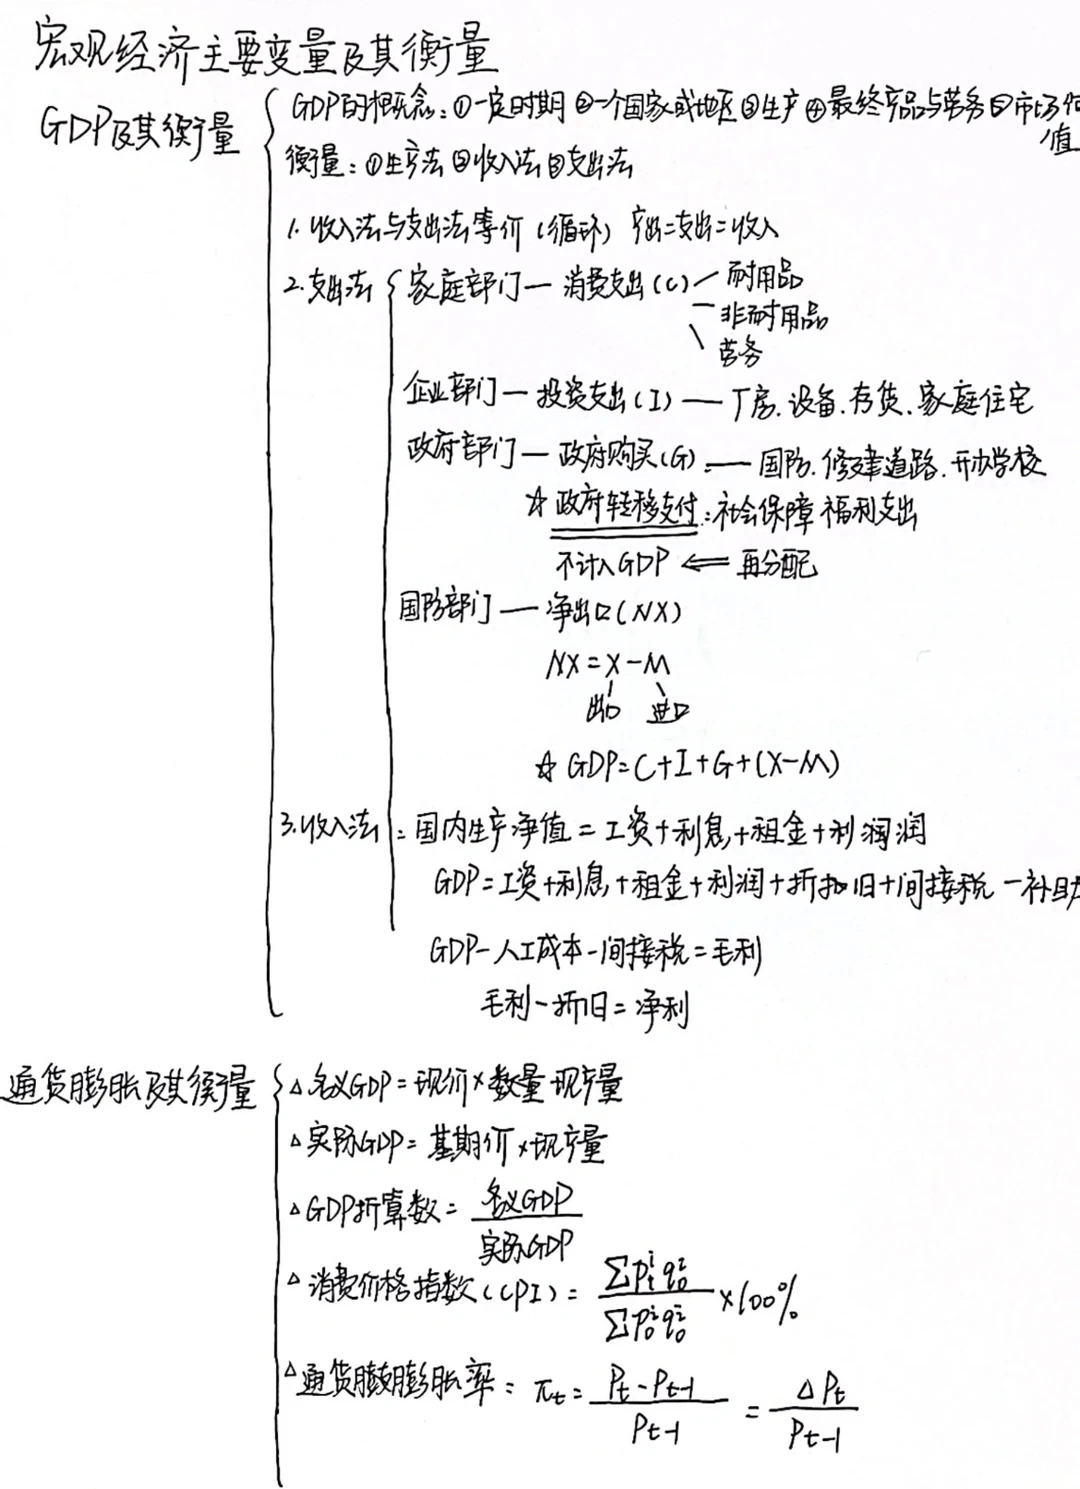 宏观经济主要变量及其衡量
GDP及其衡量
GDP的概念：①一定时期②一个国家或地区③生产④最终产品与劳务⑤市场价
值
衡量：①生产法②收入法③支出法
1.收入法与支出法等价（循环） 产出=支出=收入
2.支出法
家庭部门—消费支出(C)
耐用品
非耐用品
劳务
企业部门—投资支出(I)—厂房、设备、存货、家庭住宅
政府部门—政府购买(G)—国防、修建道路、开办学校
☆政府转移支付：社会保障福利支出
不计入GDP ⇐ 再分配
国际部门—净出口(NX)
NX=X-M
出口 进口
☆ GDP=C+I+G+(X-M)
3.收入法：国内生产净值=工资+利息+租金+利润润
GDP=工资+利息+租金+利润+折旧+间接税-补助
GDP-人工成本-间接税=毛利
毛利-折旧=净利
通货膨胀及其衡量
△名义GDP=现价×数量 现产量
△实际GDP=基期价×现产量
△GDP折算数=名义GDP/实际GDP
△消费价格指数(CPI)=∑Pₜⁱq₀ⁱ/∑P₀ⁱq₀ⁱ×100%
△通货膨胀率：πt=(Pt-Pt-1)/Pt-1=△Pt/Pt-1